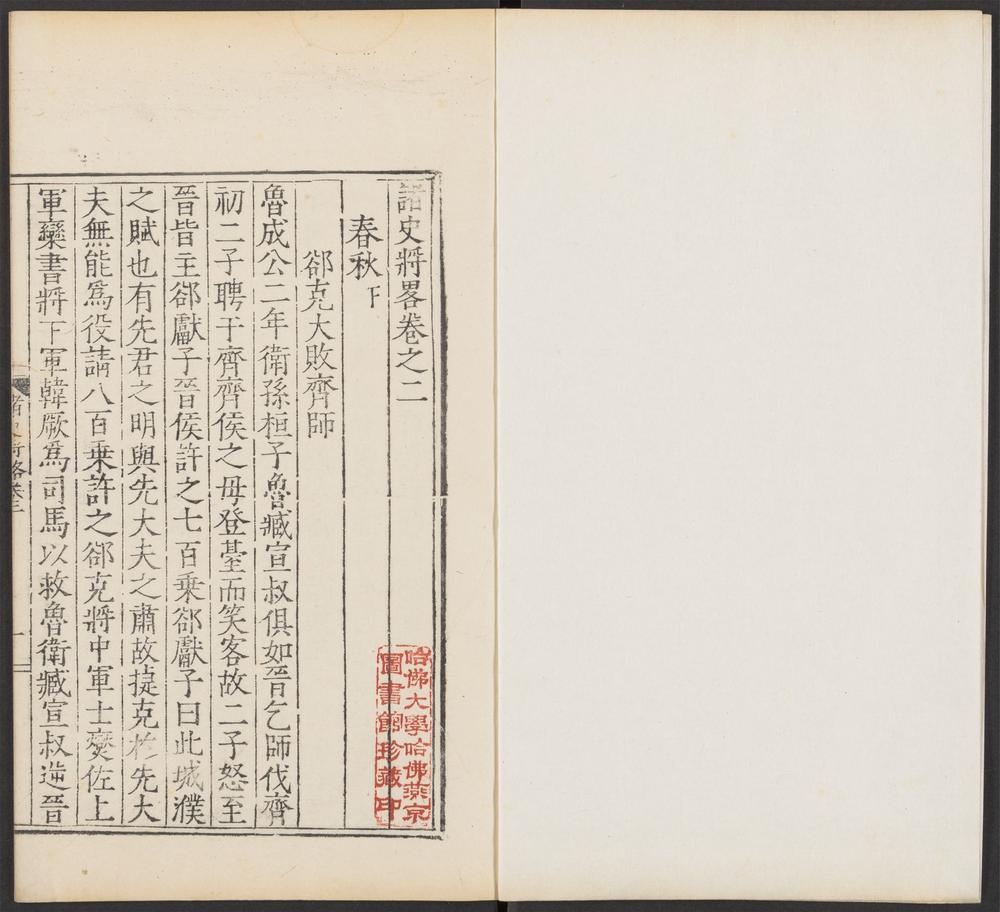 諸史將畧卷之二
春秋下
郤克大敗齊師
魯成公二年衛孫桓子魯臧宣叔俱如晉乞師伐齊
初二子聘于齊齊侯之母登臺而笑客故二子怒至
晉皆主郤獻子晉侯許之七百乘郤獻子曰此城濮
之賦也有先君之明與先大夫之肅故捷克於先大
夫無能爲役請八百乘許之郤克將中軍士燮佐上
軍欒書將下軍韓厥爲司馬以救魯衛臧宣叔逆晉
哈佛大學哈佛燕京
圖書館珍藏印